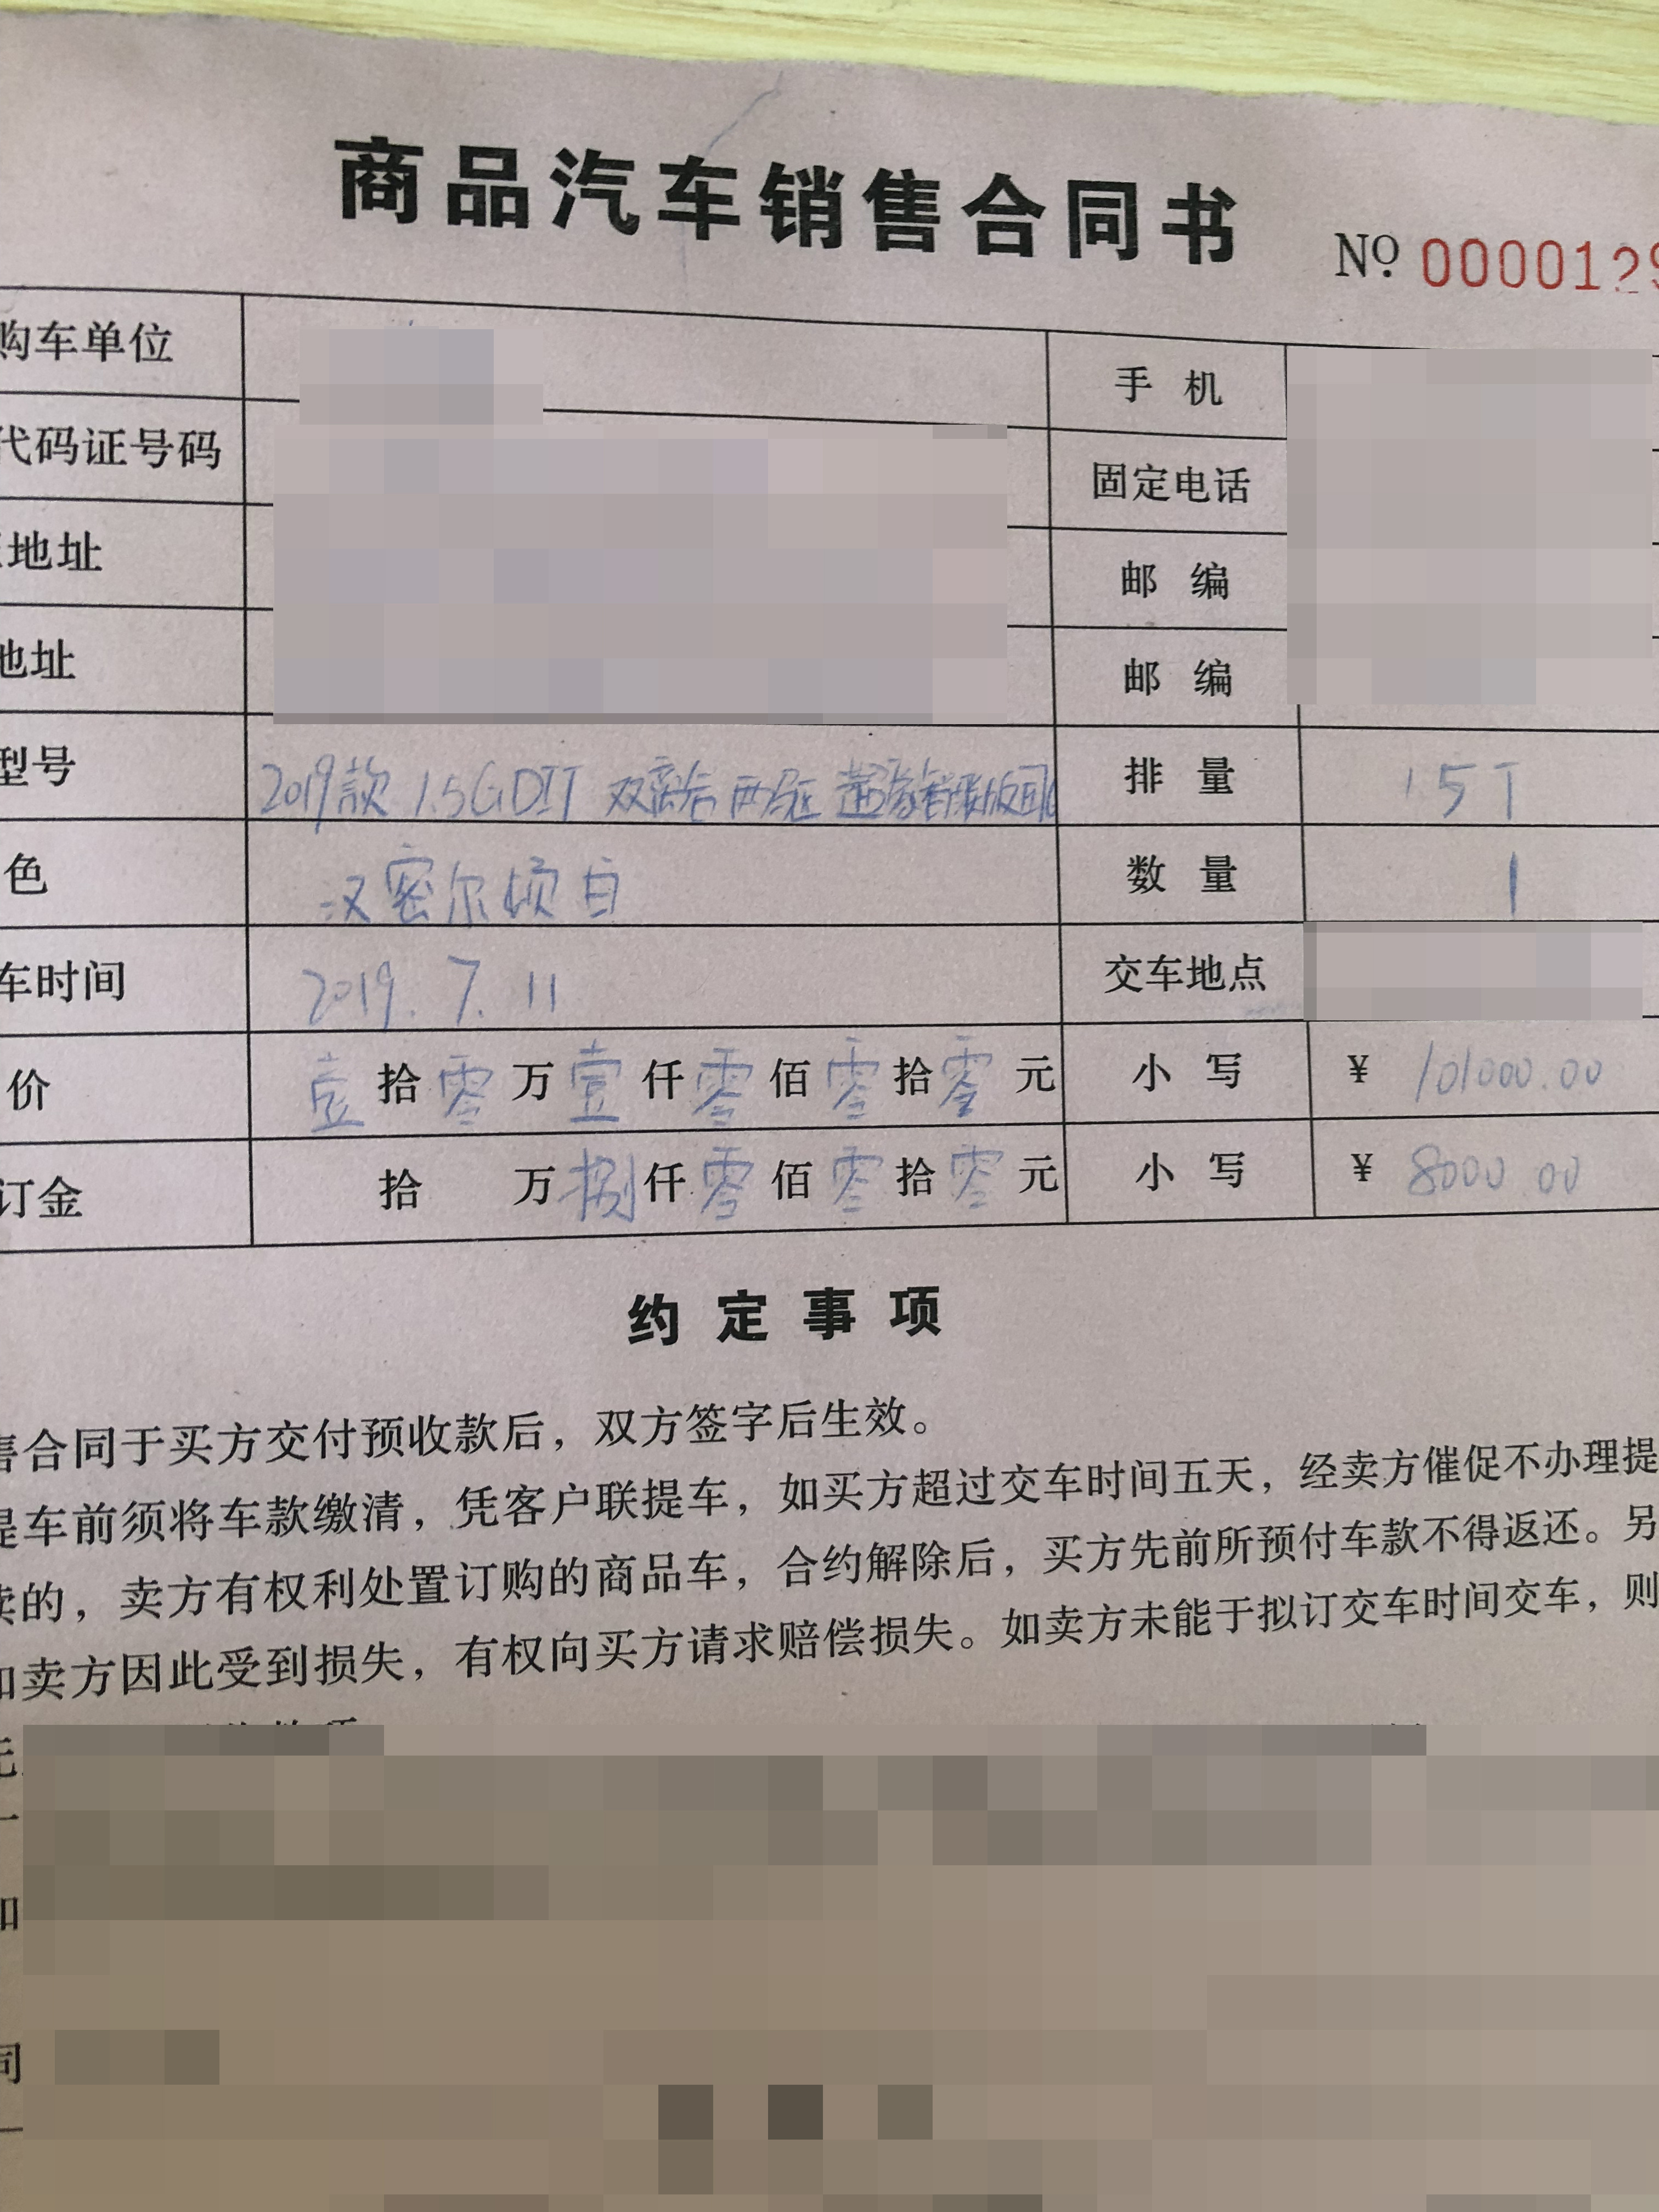 商品汽车销售合同书
No 000012
购车单位 手机
代码证号码 固定电话
地址 邮编
地址 邮编
型号 2019款 1.5GDIT 双离合 两驱 排量 1.5T
色 汉密尔顿白 数量 1
车时间 2019.7.11 交车地点
价 壹拾零万壹仟零佰零拾零元 小写 ¥ 101000.00
订金 拾万捌仟零佰零拾零元 小写 ¥ 8000.00
约定事项
售合同于买方交付预收款后，双方签字后生效。
提车前须将车款缴清，凭客户联提车，如买方超过交车时间五天，经卖方催促不办理提
续的，卖方有权利处置订购的商品车，合约解除后，买方先前所预付车款不得返还。另
如卖方因此受到损失，有权向买方请求赔偿损失。如卖方未能于拟订交车时间交车，则